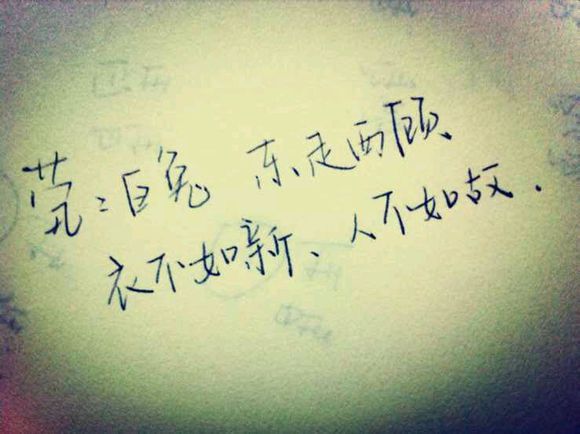 茕:白兔 东走西顾、
衣不如新、人不如故.